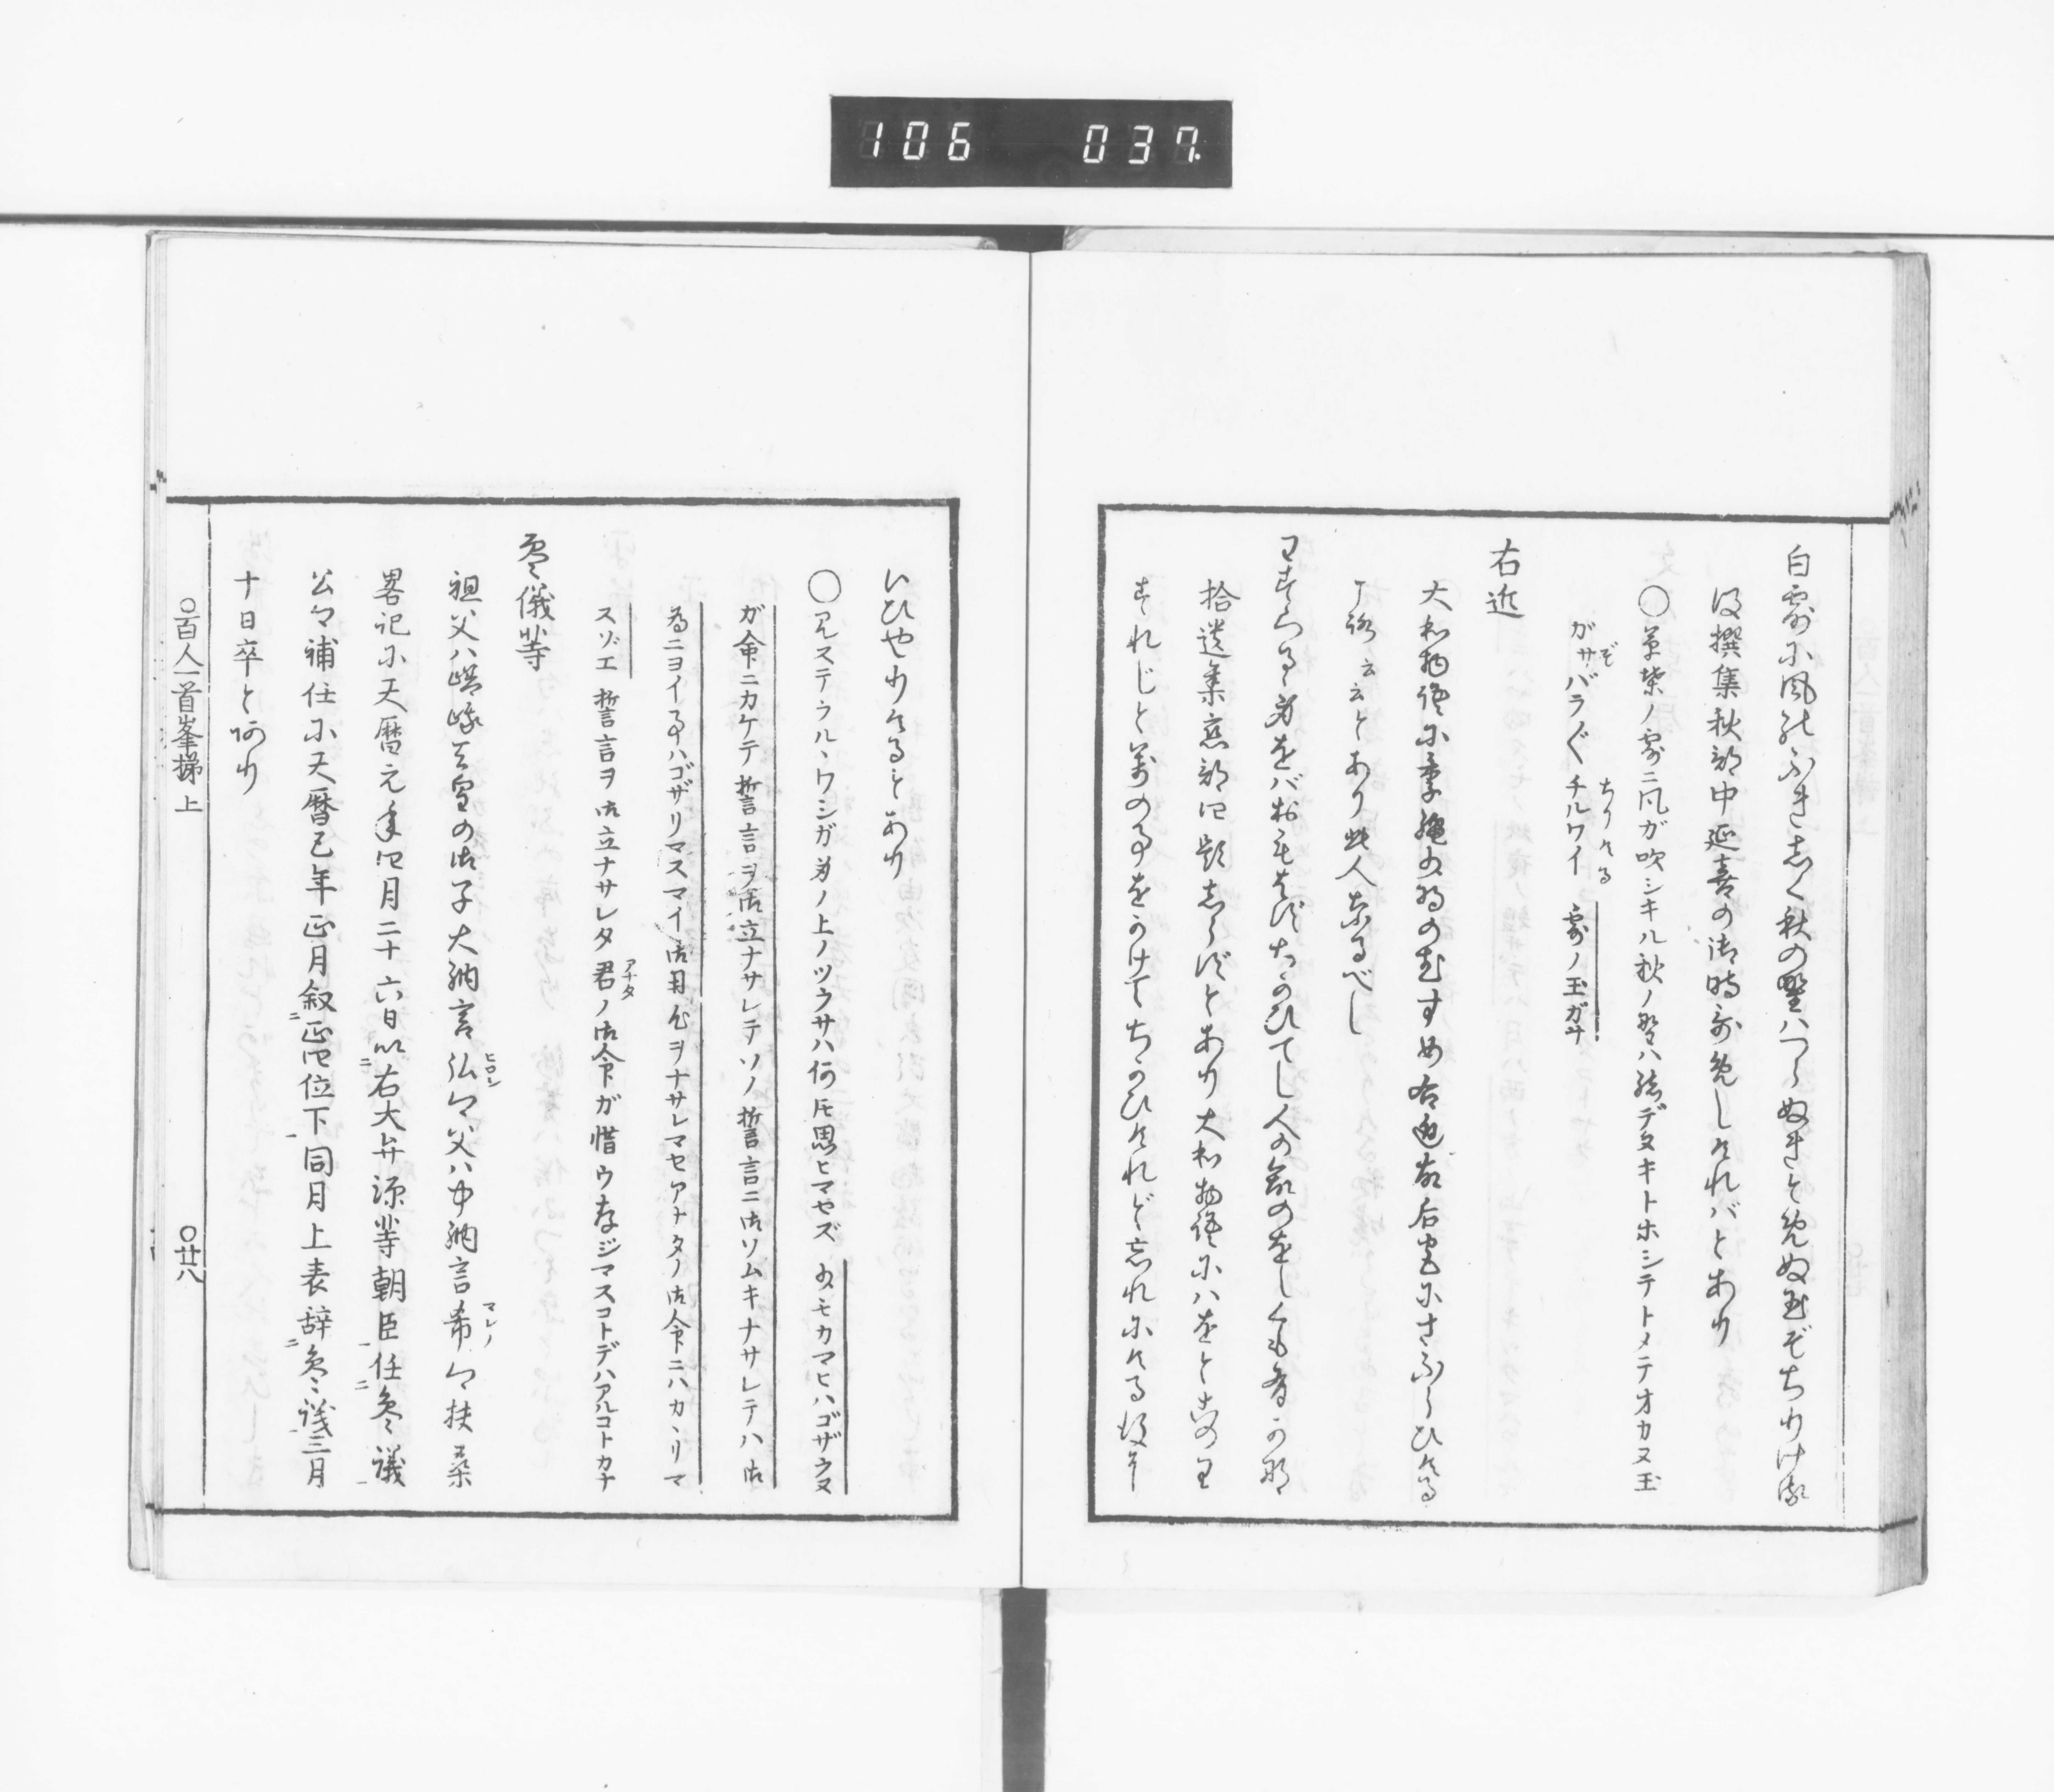 106 037
白露に風のふきしく秋の野はつらぬきとめぬ玉ぞちりける
後撰集秋部中延喜の御時哥めしければとあり
○草葉ノ露ニ風ガ吹シキル秋ノ野ハ絲デヌキトホシテトメテオカヌ玉
がサぞバラ〱チルワイちりける 露ノ玉ガサ
右近
大和物語に季縄少将のむすめ右近故后宮にさふらひける
ころ云云とあり此人なるべし
わすらるゝ身をばおもはずちかひてし人の命のをしくも有かな
拾遺集恋部四題しらずとあり大和物語にハをとこのわ
すれじと萬の事をかけてちかひけれど忘れにける後に
いひやりけるとあり
○ワスラルヽワシガ身ノ上ノツラサハ何トモ思ヒマセズ 少モカマヒハゴザラヌ
ガ命ニカケテ誓言ヲ御立ナサレテソノ誓言ニ御ソムキナサレテハ御
為ニヨイ事ハゴザリマスマイ御用心ヲナサレマセアナタノ御命ニハカヽリマ
スゾエ 誓言ヲ御立ナサレタ君アナタノ御命ガ惜ウ存ジマスコトデハアルコトカナ
参儀等
祖父ハ嵯峨天皇の御子大納言弘ヒロシ公父ハ中納言希マレノ公扶桑
畧記に天暦元年四月二十六日以二右大弁源等朝臣一任二参議一
公卿補任に天暦巳年正月叙二正四位下一同月上表辞二参議一三月
十日卒とあり
○百人一首峯梯上
○廿八